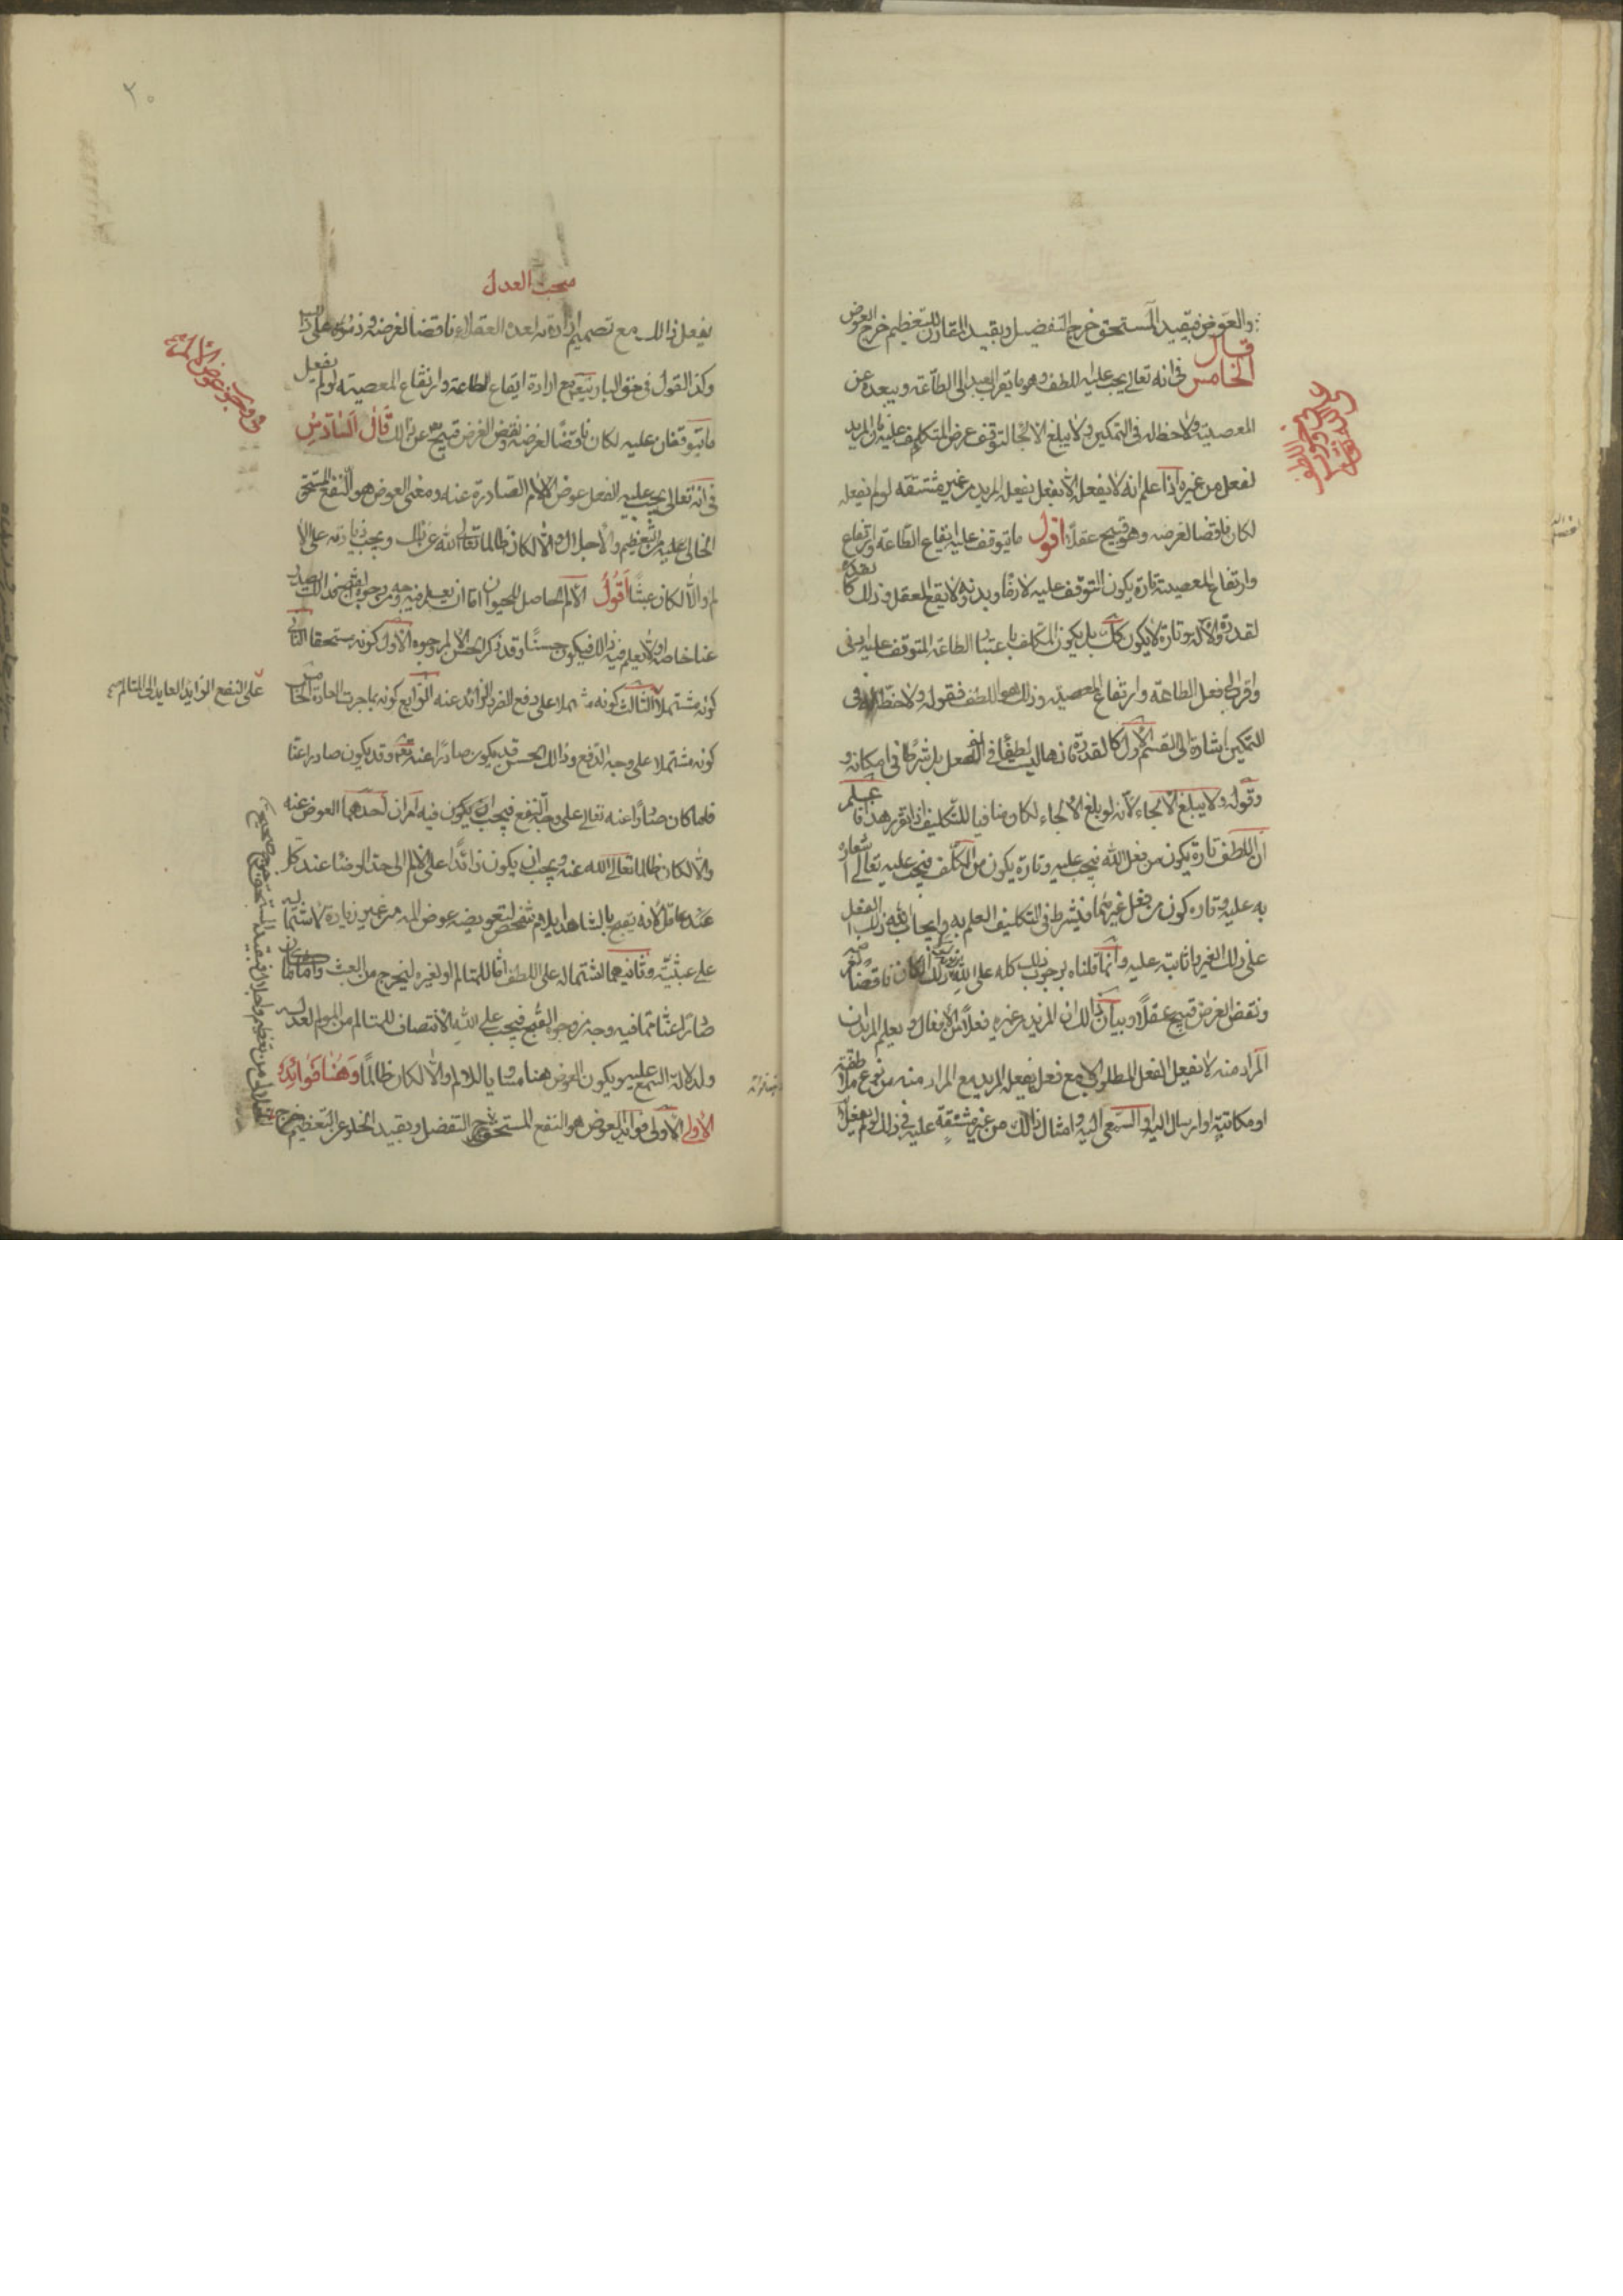 والعوض فبقيد المستحق خرج التفضيل وبقيد المقارن للتعظيم خرج العوض
قال
الخامس في انه تعالى يجب عليه اللطف وهو ما يقرب العبد الى الطاعة ويبعده عن
المعصية ولا حظ له في التمكين ولا يبلغ الالجا لتوقف غرض المكلف عليه فان المريد
لفعل من غيره اذا علم انه لا يفعله الا بفعل يفعله المريد من غير مشقة لو لم يفعله
لكان ناقضا لغرضه وهو قبيح عقلا اقول ما يتوقف عليه ايقاع الطاعة وارتفاع
وارتفاع المعصية تارة يكون التوقف عليه لازما وبدونه لا يقع الفعل وذلك كا
لقدرة والآلة وتارة لا يكون كك بل يكون المكلف باعتبار الطاعة المتوقف عليه ادنى
واقرب الى فعل الطاعة وارتفاع المعصية وذلك هو اللطف فقوله ولا حظ له في
التمكين اشارة الى القسم الاول كالقدرة فانها ليست لطفا في الفعل بل شرطا في امكانه و
وقوله ولا يبلغ الالجاء لانه لو بلغ الالجاء لكان منافيا للتكليف اذا تقرر هذا فاعلم
ان اللطف تارة يكون من فعل الله فيجب عليه وتارة يكون من المكلف فيجب عليه تعالى اشعاره
به عليه وتاره كون من فعل غيرهما فيشترط في التكليف العلم به وايجاب الله ذلك الفعل
على ذلك الغير باثابته عليه وانما قلناه بوجوب ذلك كله على الله لكان ناقضا لغرضه
ونقض الغرض قبيح عقلا وبيان ذالك ان المريد من غيره فعلا من الافعال ويعلم المريد ان
المراد منه لا يفعل الفعل المطلوب الا مع فعل يفعله المريد مع المراد منه من نوع ملاطفة
او مكاتبة او ارسال اليه او السعي اليه وامثال ذالك من غير مشقة عليه في ذلك لو لم يفعل
٢٠
مبحث العدل
يفعل ذالك مع تصميم ارادته لعده العقلاء ناقضا لغرضه وذموه على ذالك
وكذا القول في حق الباري تعم مع ارادة ايقاع الطاعة وارتفاع المعصية لو لم يفعل
ما يتوقفان عليه لكان ناقضا لغرضه ونقض الغرض قبيح تعم عن ذالك قال السادس
في انه تعالى يجب عليه الفعل عوض الآلام الصادرة عنه ومعنى العوض هو النفع المستحق
الخالي عليه من التعظيم والاجلال والا لكان ظالما تعالى الله عن ذالك ويجب زيادته على الا
لم والا لكان عبثا اقول الالم الحاصل للحيوان اما ان يعلم فيه وجه من وجوه القبح فذالك يصدر
عنا خاصة او لا يعلم فيه ذالك فيكون حسنا وقد ذكر الحسن الالم وجوه الاول كونه مستحقا الثاني
كونه مشتملا الثالث كونه مشتملا على دفع الضرر الزائد عنه الرابع كونه بما جرت العادة الخامس
على النفع الزايد العايد الى المتالم
كونه مشتملا على وجه الدفع وذالك الحسن قد يكون صادرا عنه تعم وقد يكون صادرا عنا
فلما كان صادرا عنه تعالى على وجه النفع فيجب ان يكون فيه امران احدهما العوض عنه
والا لكان ظالما تعالى الله عنه ويجب ان يكون زائدا على الالم الى حد الرضا عند كل
عند عاقل لانه يقبح بالشاهد ايلام شخص لتعويضه عوض المه من غير زيادة لاشتماله
على عبثية وثانيهما اشتماله على اللطف اما للمتالم او لغيره ليخرج من العبث واما ما كان
صادرا عنا مما فيه وجه من وجوه القبح فيجب على الله الانتصاف للمتالم من المولم لعدله
ولدلالة السمع عليه ويكون العوض هنا مساويا للالم والا لكان ظالما وهنا فوائد
الاولى الاولى فوائد العوض هو النفع المستحق التفضل وبقيد الخلو عن التعظيم خرج